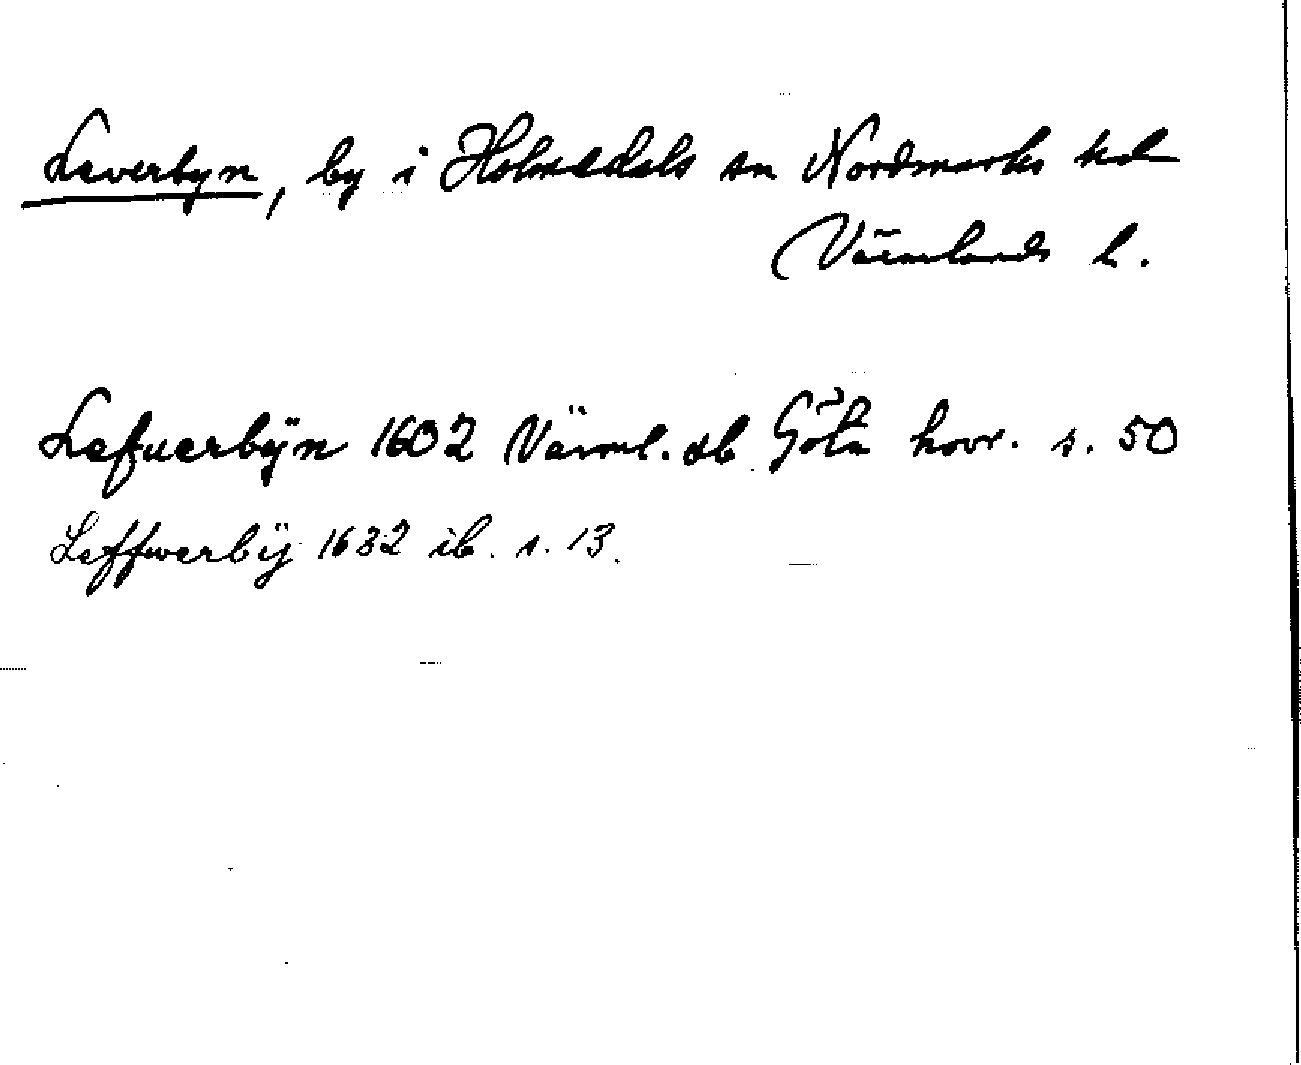 Leverbyn, by i Holmedals sn Nordmarks hd
Värmlands l.
Lefuerbÿn 1602 Värml. db Göta hovr. s. 50
Leffwerbÿ 1632 ib. s. 13.